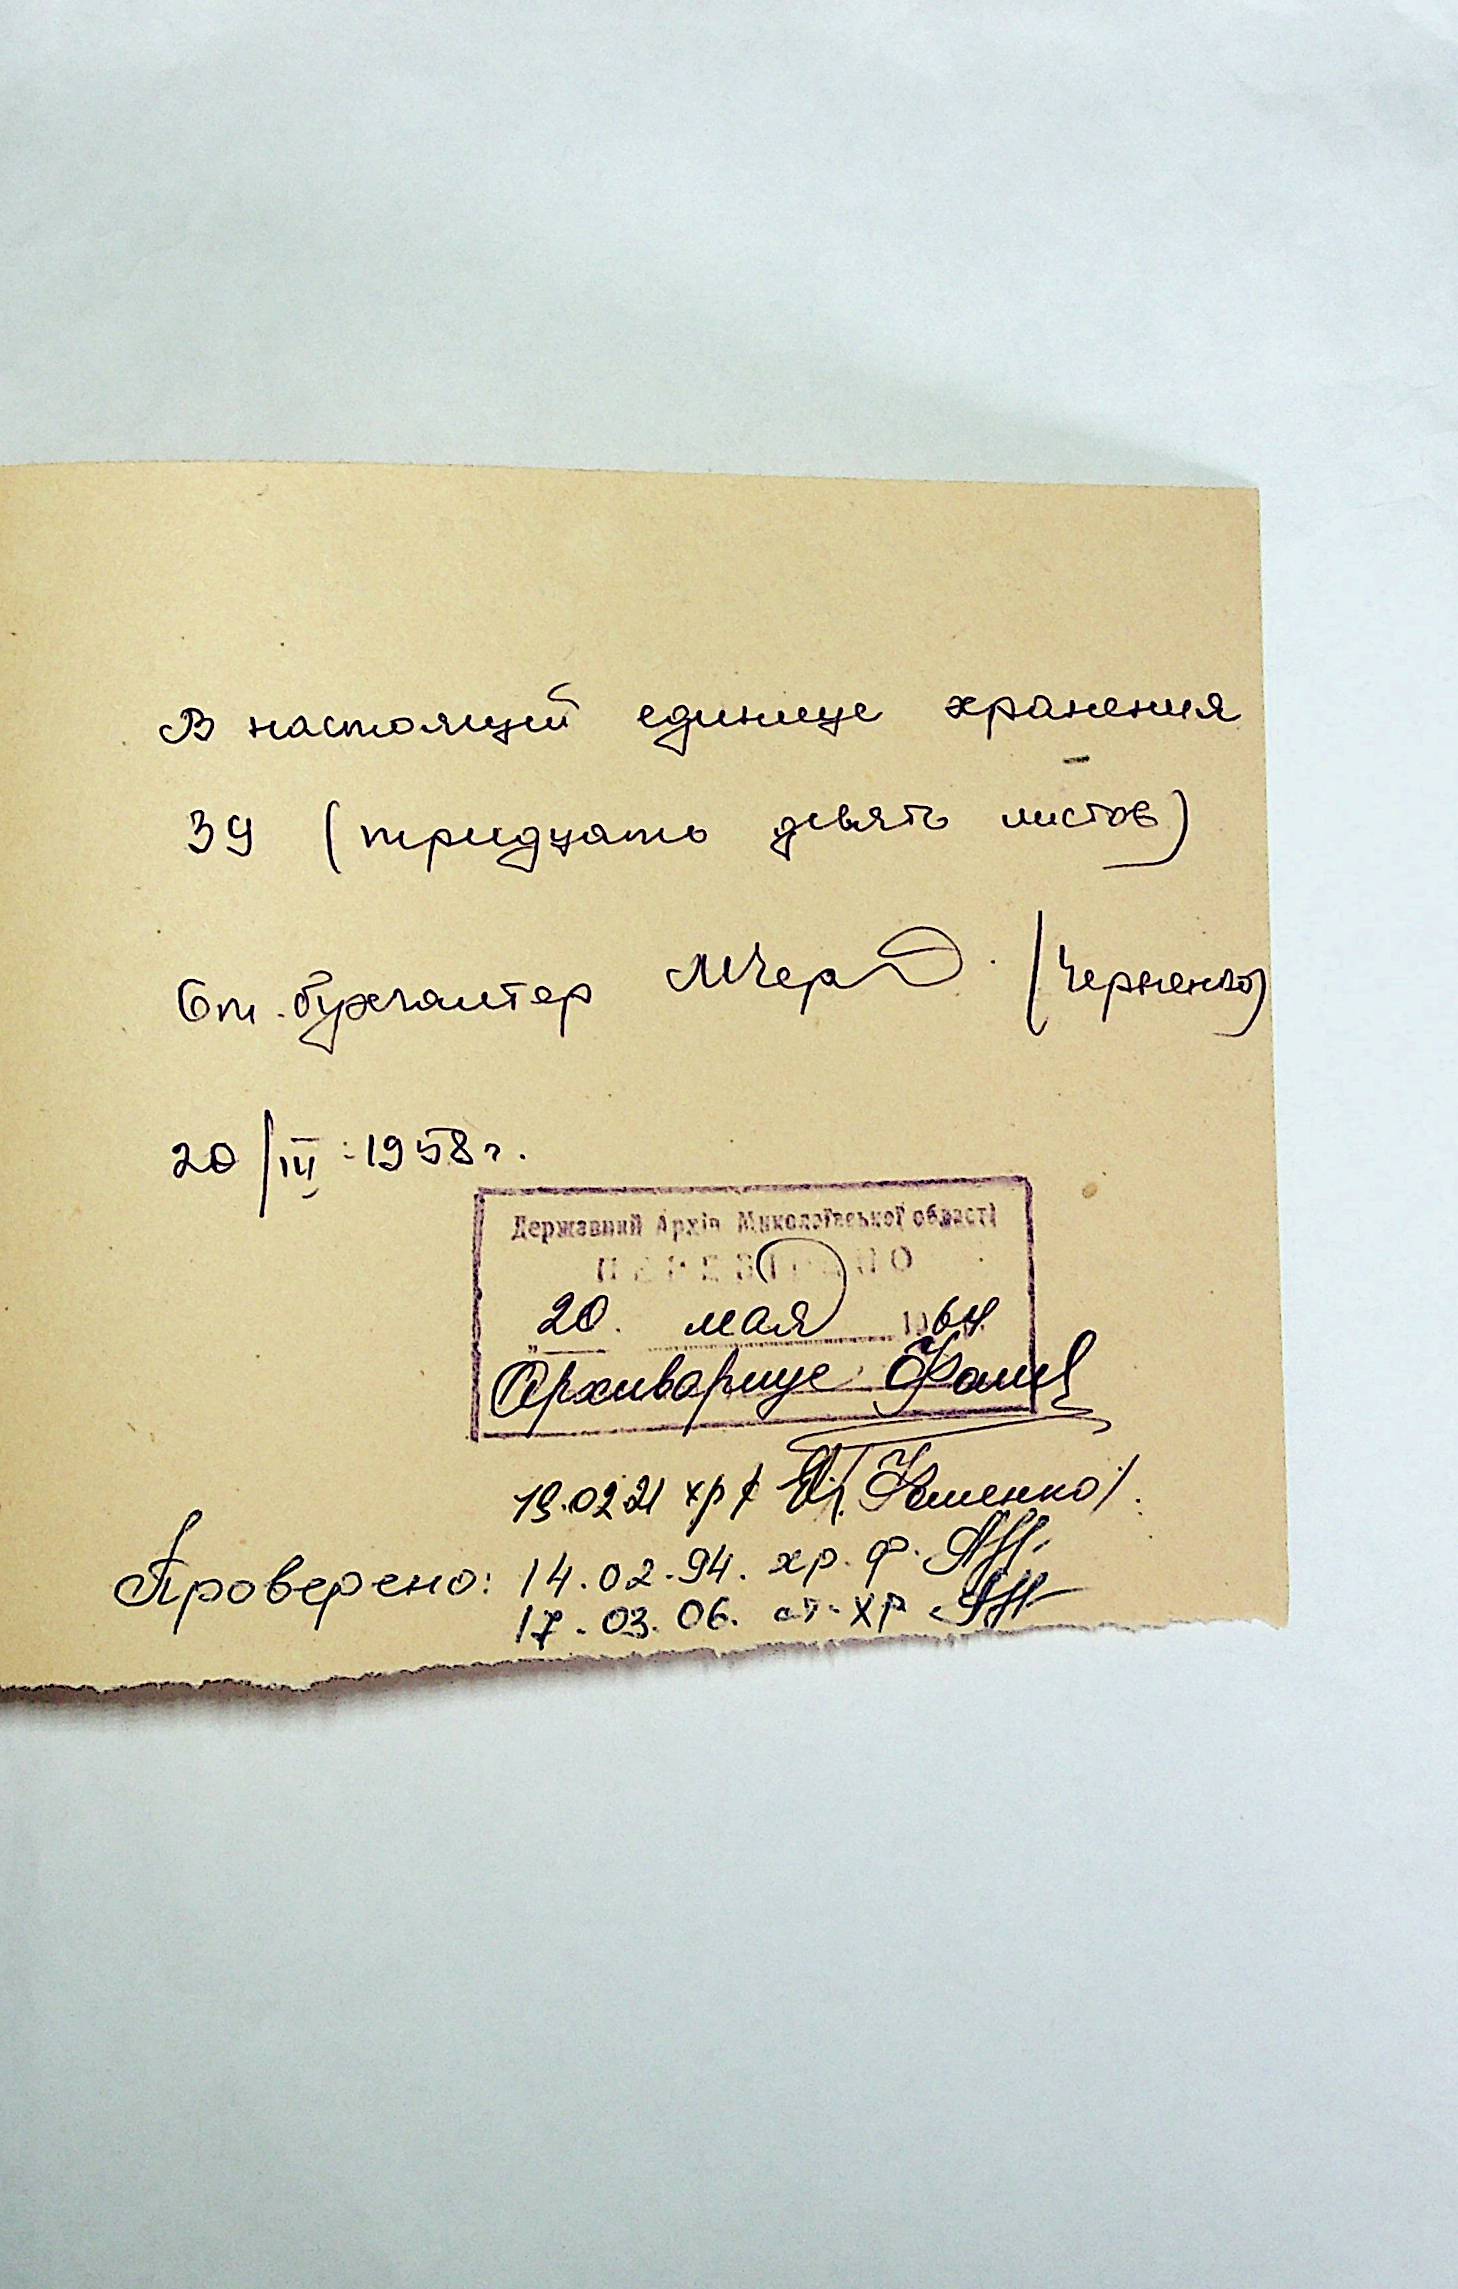 В настоящий единице хранения
39 (тридцать девять листов)
бухгалтер МЧер (Черненко)
20/III-1958 г.
Державний Архів Миколаївської області
ПЕРЕВІРЕНО
„20. мая 1964
Архивариус
19.02.21 хр ф
Проверено: 14.02.94. хр. ф.
17.03.06. ст. хр